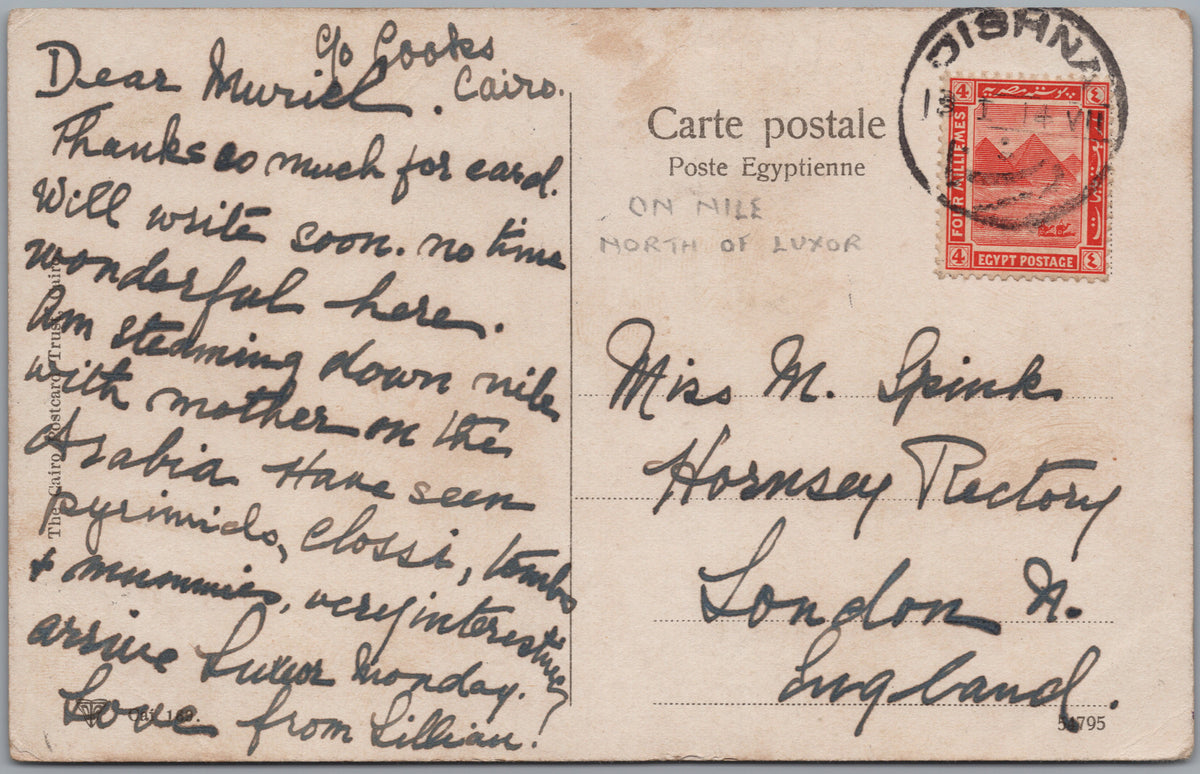 c/o Cooks
Cairo.
Dear Muriel.
Thanks so much for card.
Will write soon. no time
wonderful here.
Am steaming down nile
with mother on the
Arabia Have seen
pyrimids, Clossi, tombs
+ mummies, very interesting
arrive Luxor Monday.
Love from Lillian!
The Cairo Postcard Trust, Cairo
Cai. 189.
Carte postale
Poste Egyptienne
ON NILE
NORTH OF LUXOR
DISHNA
13 I 14 VII
4
٤
بوستة مصرية
FOUR MILLIEMES
4
٤
EGYPT POSTAGE
Miss M. Spink
Hornsey Rectory
London N.
England.
54795